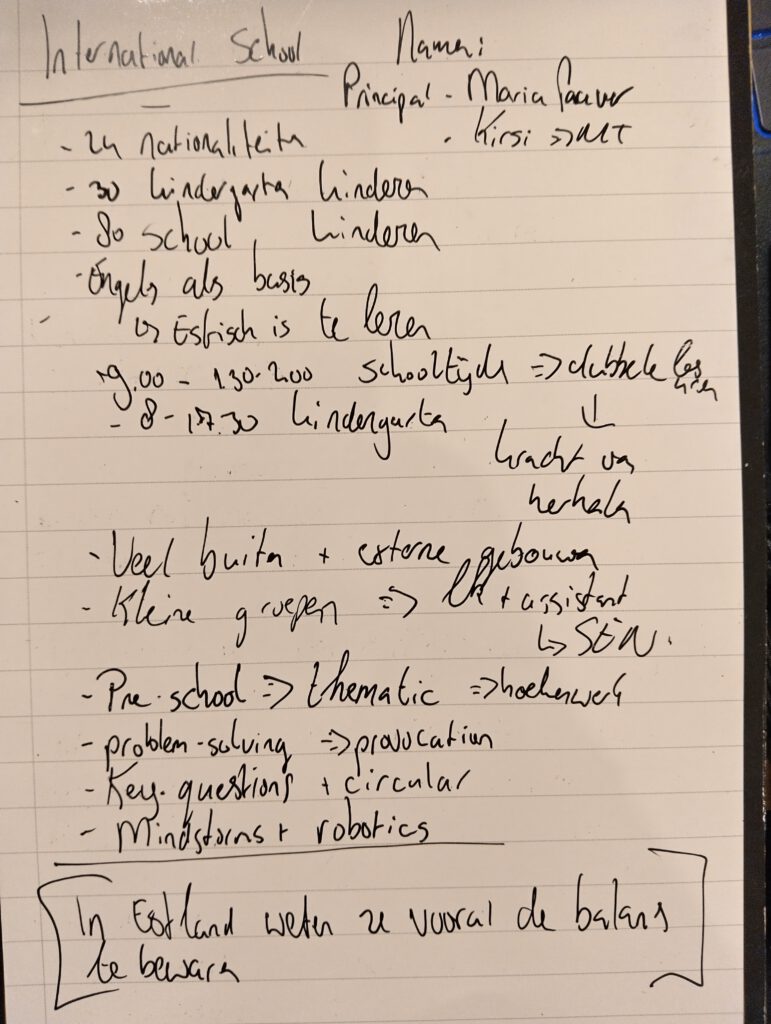 International School
Namen:
Principal - Maria
- Kirsi => MT
- 24 nationaliteiten
- 30 kindergarten kinderen
- 80 school kinderen
- Engels als basis
↳ Estisch is te leren
- 9.00 - 1.30-2.00 schooltijden => dubbele lesuren
↓
kracht van
herhalen
- 8-17.30 kindergarten
- Veel buiten + externe gebouwen
- Kleine groepen => lk + assistent
↳ SEN.
- Pre-school => thematic => hoekenwerk
- problem-solving => provocation
- Key-questions + circular
- Mindstorms + robotics
In Estland weten ze vooral de balans
te bewaren